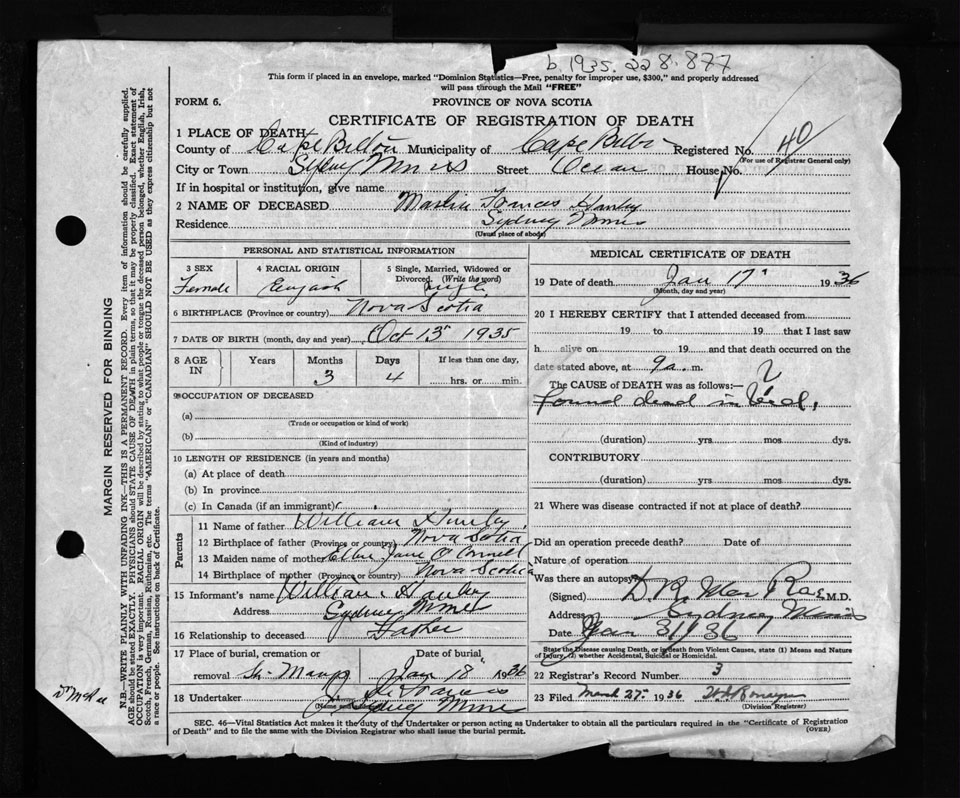 b. 1935. 228.877
This form if placed in an envelope, marked "Dominion Statistics—Free, penalty for improper use, $300," and properly addressed
will pass through the Mail "FREE"
FORM 6.
PROVINCE OF NOVA SCOTIA
CERTIFICATE OF REGISTRATION OF DEATH
1 PLACE OF DEATH
County of Cape Breton Municipality of Cape Breton Registered No. 40
(For use of Registrar General only)
City or Town Sydney Mines Street Ocean House No.
If in hospital or institution, give name
2 NAME OF DECEASED Frances Hanley
Residence Sydney Mines
(Usual place of abode)
PERSONAL AND STATISTICAL INFORMATION
3 SEX
Female
4 RACIAL ORIGIN
English
5 Single, Married, Widowed or
Divorced. (Write the word)
Single
6 BIRTHPLACE (Province or country) Nova Scotia
7 DATE OF BIRTH (month, day and year) Oct 13 1935
8 AGE IN
Years Months Days If less than one day,
3 4 hrs. or min.
9 OCCUPATION OF DECEASED
(a)
(Trade or occupation or kind of work)
(b)
(Kind of industry)
10 LENGTH OF RESIDENCE (in years and months)
(a) At place of death
(b) In province
(c) In Canada (if an immigrant)
Parents
11 Name of father William Hanley
12 Birthplace of father (Province or country) Nova Scotia
13 Maiden name of mother Ellen Jane O'Connell
14 Birthplace of mother (Province or country) Nova Scotia
15 Informant's name William Hanley
Address Sydney Mines
16 Relationship to deceased Father
17 Place of burial, cremation or
removal Sy. Mines
Date of burial
Jan 18 1936
18 Undertaker
Sydney Mines
MEDICAL CERTIFICATE OF DEATH
19 Date of death Jan 17 1936
(Month, day and year)
20 I HEREBY CERTIFY that I attended deceased from
19 to 19 that I last saw
h alive on 19 and that death occurred on the
date stated above, at 9 a. m.
The CAUSE of DEATH was as follows:— ?
Found dead in bed.
(duration) yrs. mos. dys.
CONTRIBUTORY
(duration) yrs. mos. dys.
21 Where was disease contracted if not at place of death?
Did an operation precede death? Date of
Nature of operation
Was there an autopsy
(Signed) D. R. MacRae M.D.
Address Sydney Mines
Date Jan 31/36
State the Disease causing Death, or in death from Violent Causes, state (1) Means and Nature
of Injury, (2) whether Accidental, Suicidal or Homicidal.
22 Registrar's Record Number 3
23 Filed March 27 1936
(Division Registrar)
SEC. 46—Vital Statistics Act makes it the duty of the Undertaker or person acting as Undertaker to obtain all the particulars required in the "Certificate of Registration
of Death" and to file the same with the Division Registrar who shall issue the burial permit.
(OVER)
MARGIN RESERVED FOR BINDING
N.B.—WRITE PLAINLY WITH UNFADING INK—THIS IS A PERMANENT RECORD. Every item of information should be carefully supplied.
AGE should be stated EXACTLY. PHYSICIANS should STATE CAUSE OF DEATH in plain terms, so that it may be properly classified. Exact statement of
OCCUPATION is very important. RACIAL ORIGIN will be described by stating to what people or tongue the deceased person belonged, whether English, Irish,
Scotch, French, German, Russian, Ruthenian, etc. The terms "AMERICAN" or "CANADIAN" SHOULD NOT BE USED as they express citizenship but not
a race or people. See instructions on back of Certificate.